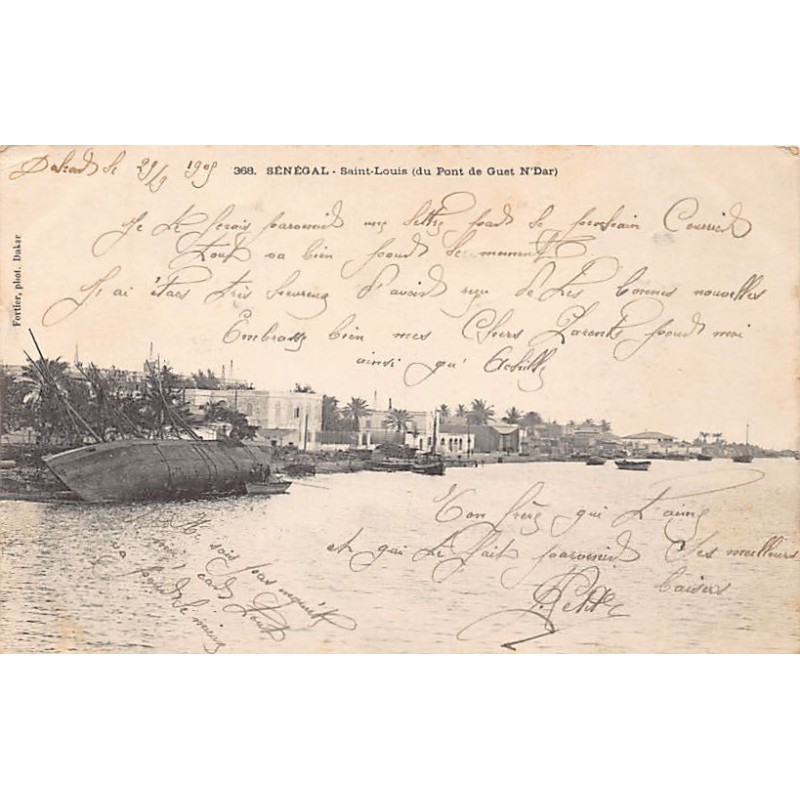 Dakar le 29/9 1905
368. SÉNÉGAL - Saint-Louis (du Pont de Guet N'Dar)
Fortier, phot. Dakar
Je te ferais parvenir une lettre par le prochain Courrier
Tout va bien pour le moment
J'ai étais très heureux d'avoir reçu de tes bonnes nouvelles
Embrasse bien mes Chers Parents pour moi
ainsi qu'Achille
Ton frère qui t'aime
et qui te fait parvenir Ses meilleurs
baisers
Ne sois pas inquiet
mon cas Tout
va pour le mieux